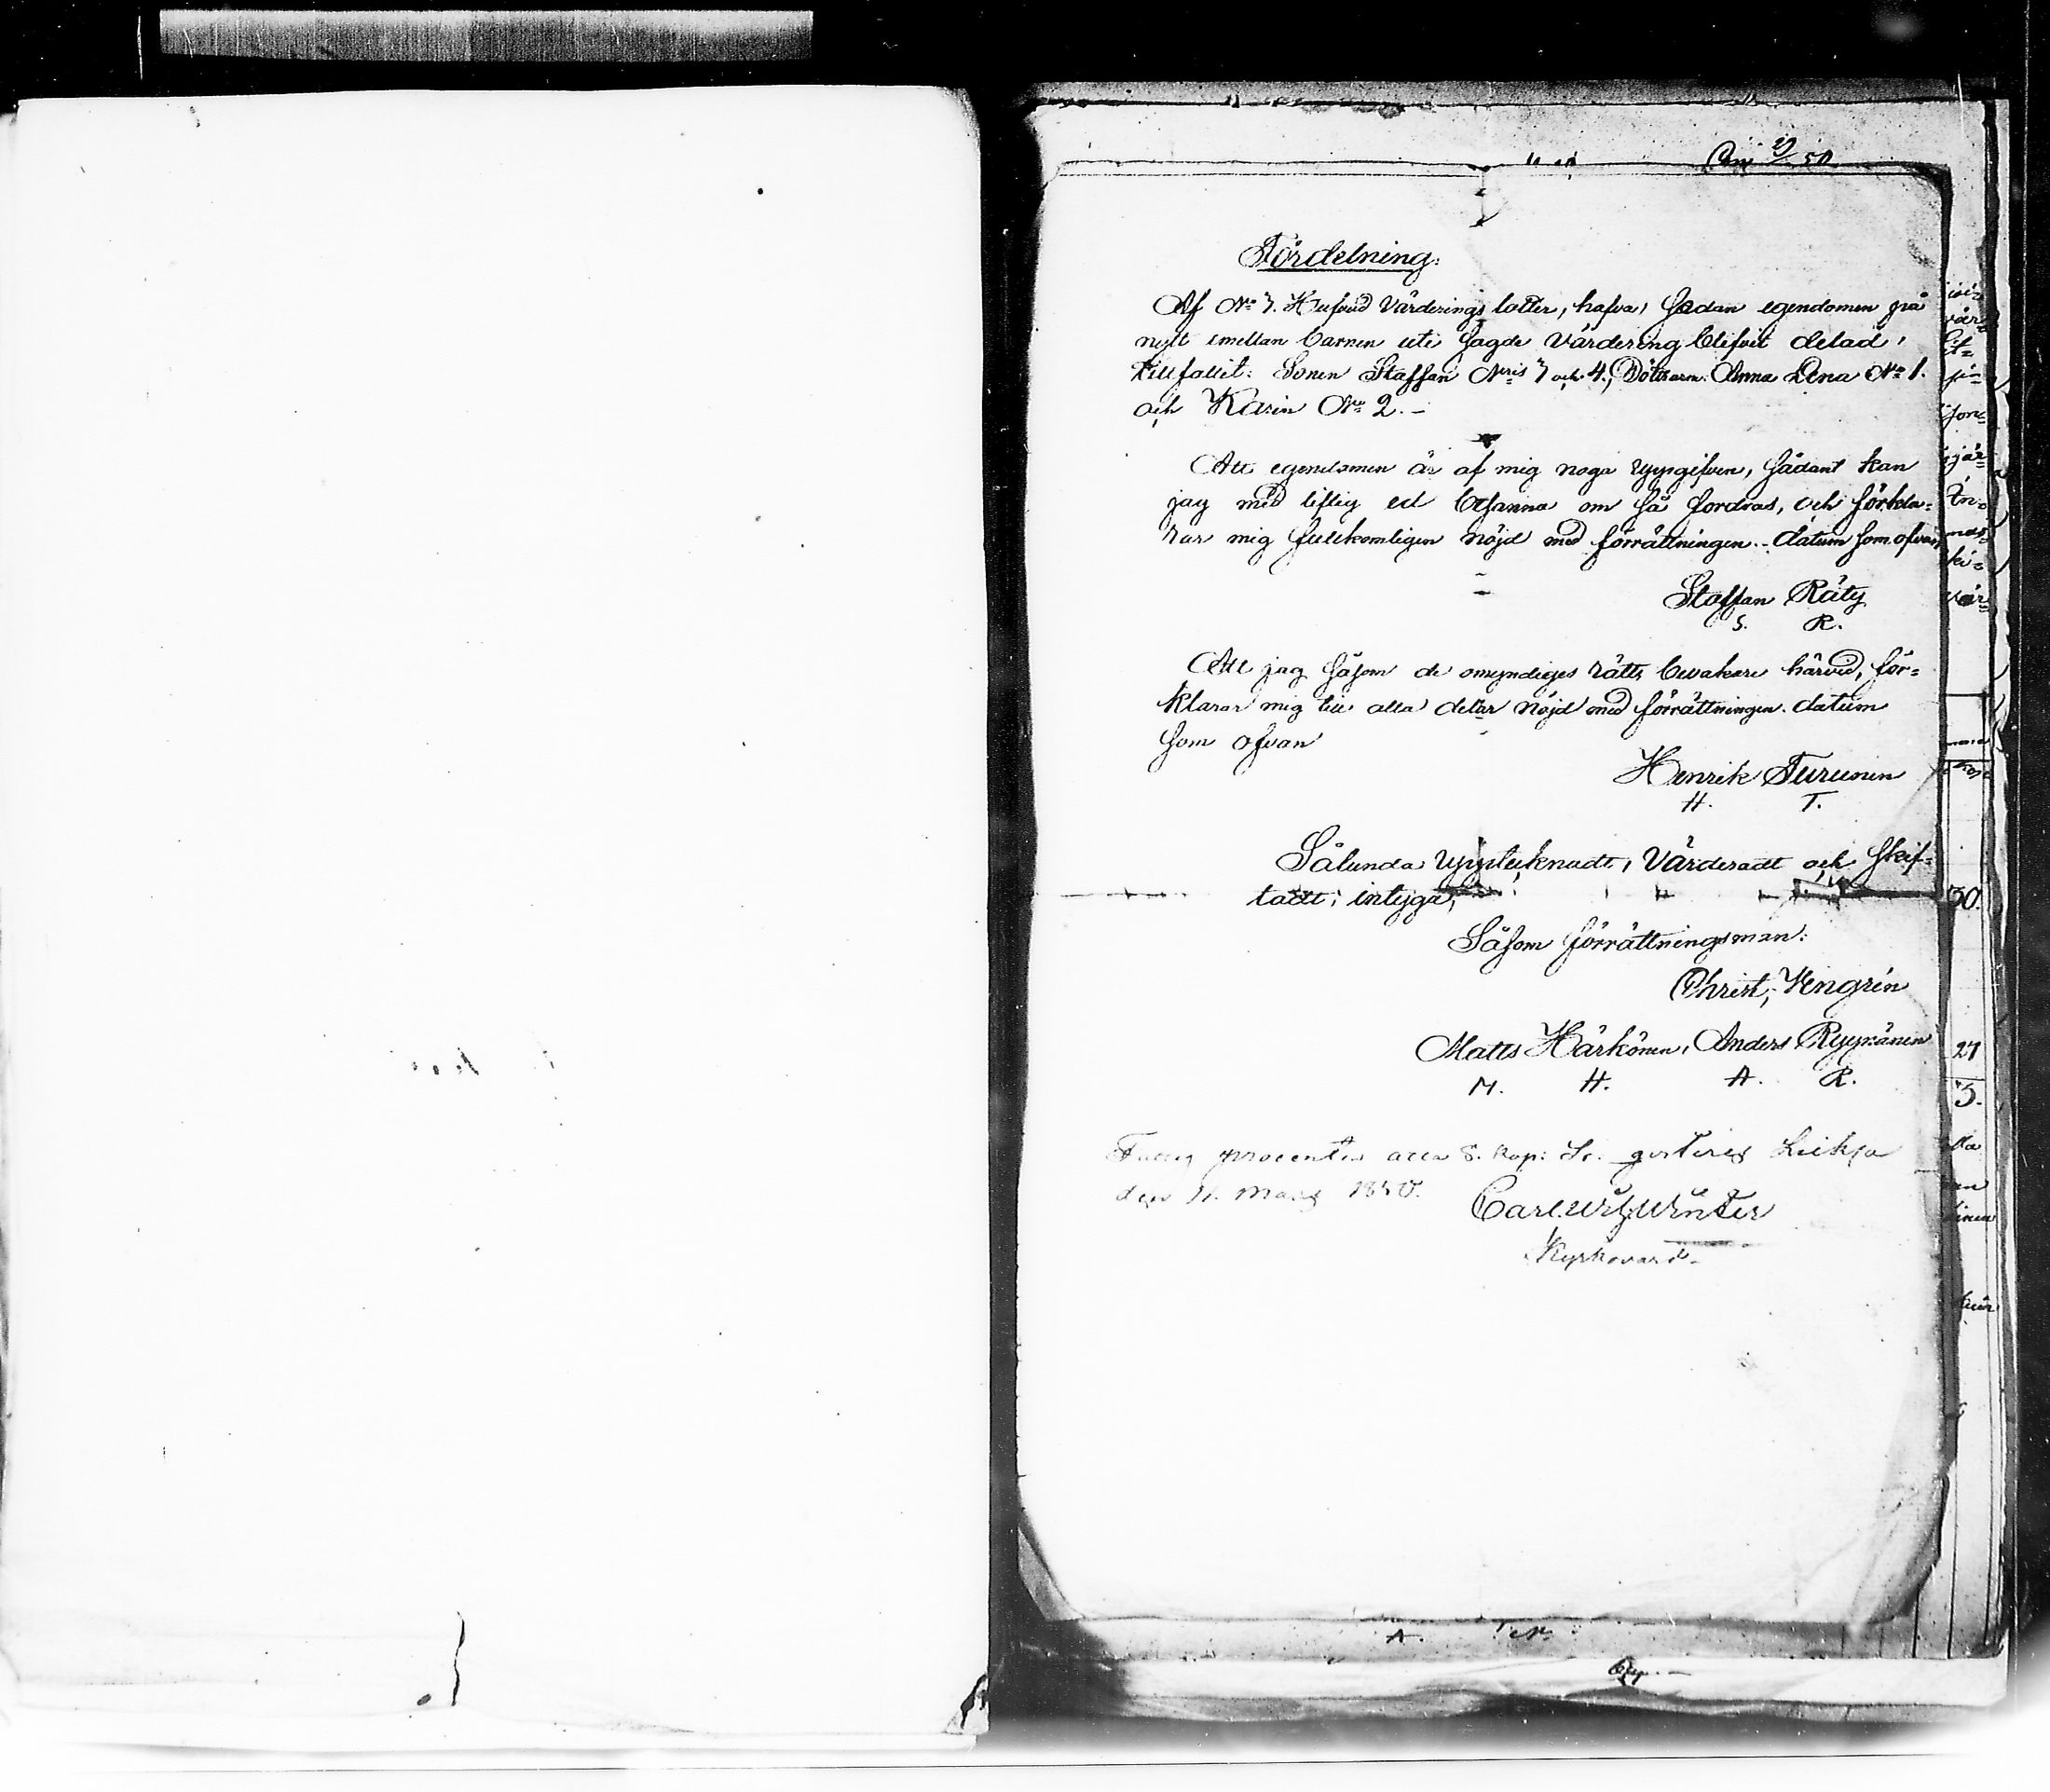 Fördelning:
Af No 3. Hufvud Värderings lotter, hafva, sedan egendomen på
nytt emellan barnen uti sagde Värdering blifvit delad,
tillfallit: Sonen Staffan Nris 3 och 4., Döttrarne: Anna Lena No 1.
och Karin No 2. —
Att egendomen är af mig noga uppgifven, sådant kan
jag med liflig ed besanna om så fordras, och förkla=
rar mig fullkomligen nöjd med förrättningen. - datum som ofvan
Staffan Räty
S. R.
Att jag såsom de omyndiges rätts bevakare härvid, för=
klarar mig till alla delar nöjd med förrättningen. datum
som ofvan
Henrik Turunin
H. T.
Sålunda upptecknadt, Värderadt och skif=
tadt; intyga;
Såsom förrättningsman:
Christ; Wengrén
Matts Härkönen, Anders Ryynänin
M. H. A. R.
Fattig procenten 8. Kop: Sr.
den 11. Mars 1850.
Carl Winter
Kyrkovärd-